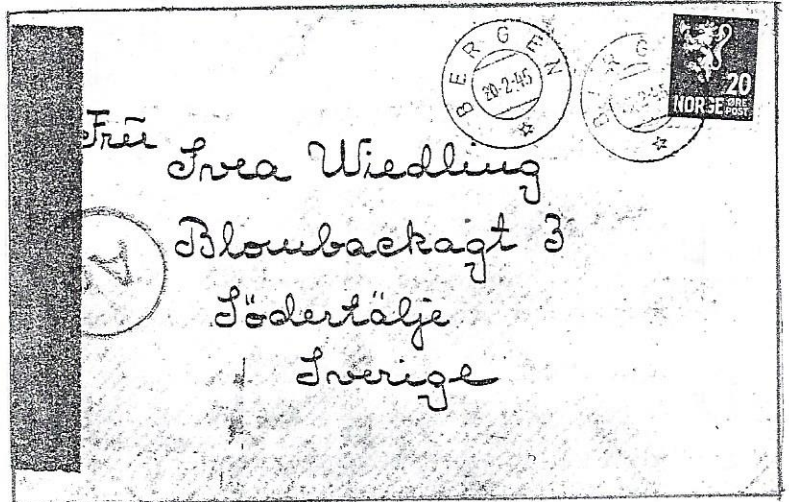 BERGEN
20-2-45
BERG
20
NORGE ØRE
POST
Fru
Svea Wiedling
Blombackagt 3
Södertälje
Sverige